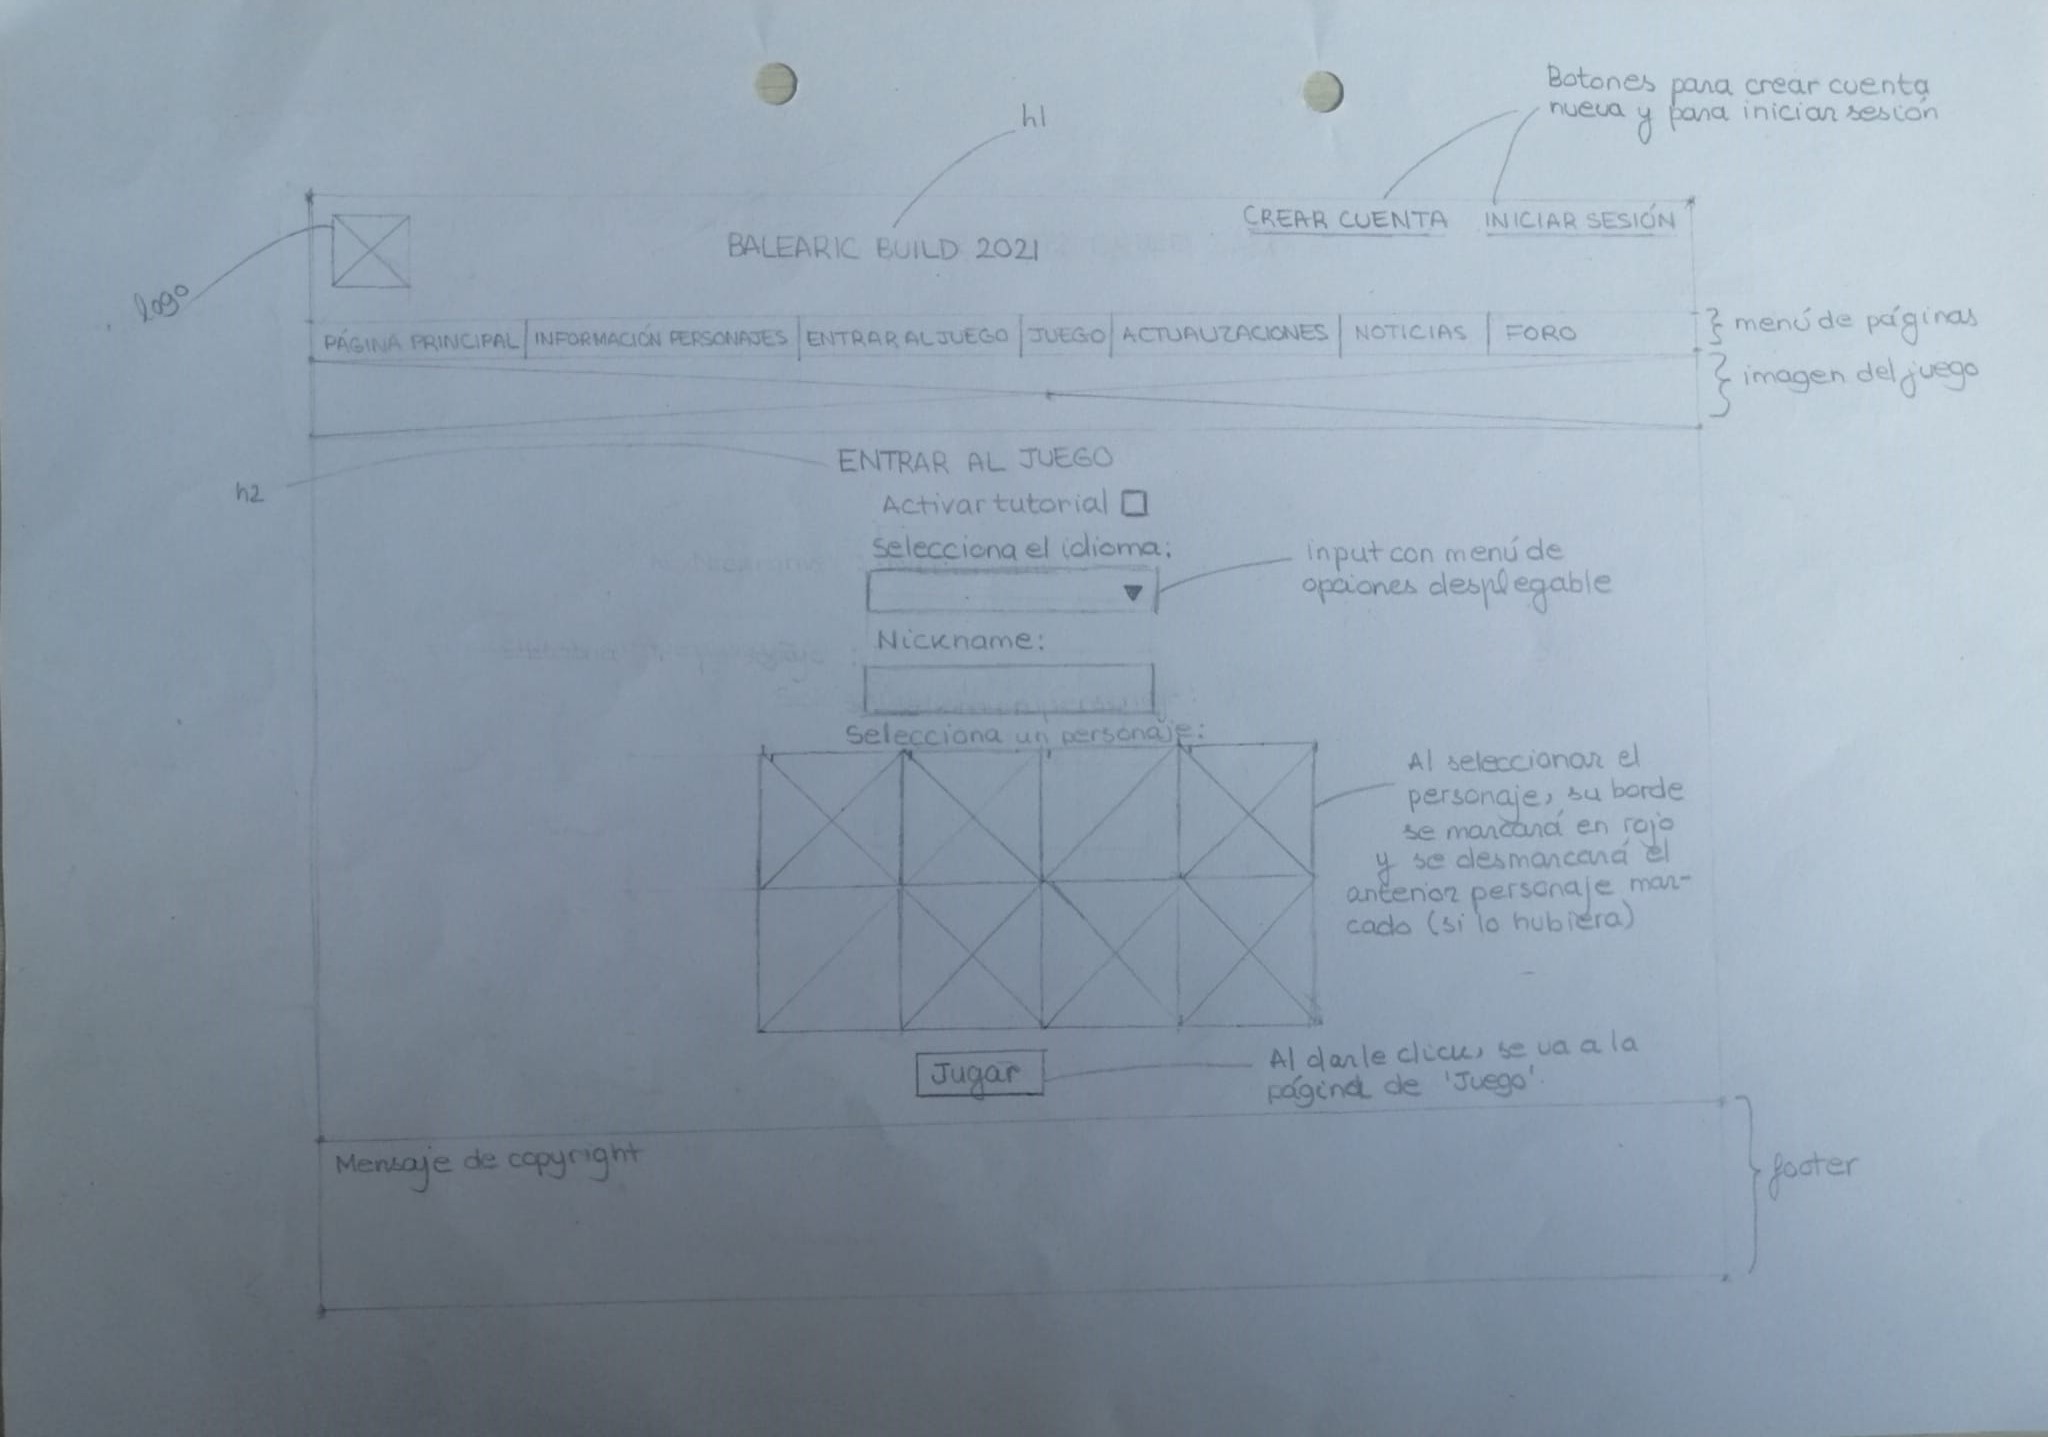 Botones para crear cuenta
nueva y para iniciar sesión
h1
CREAR CUENTA INICIAR SESIÓN
BALEARIC BUILD 2021
logo
PÁGINA PRINCIPAL INFORMACIÓN PERSONAJES ENTRAR AL JUEGO JUEGO ACTUALIZACIONES NOTICIAS FORO
menú de páginas
imagen del juego
ENTRAR AL JUEGO
h2
Activar tutorial
Selecciona el idioma:
input con menú de
opciones desplegable
Nickname:
Selecciona un personaje:
Al seleccionar el
personaje, su borde
se marcará en rojo
y se desmarcará el
anterior personaje mar-
cado (si lo hubiera)
Jugar
Al darle click, se va a la
página de 'Juego'.
Mensaje de copyright
footer